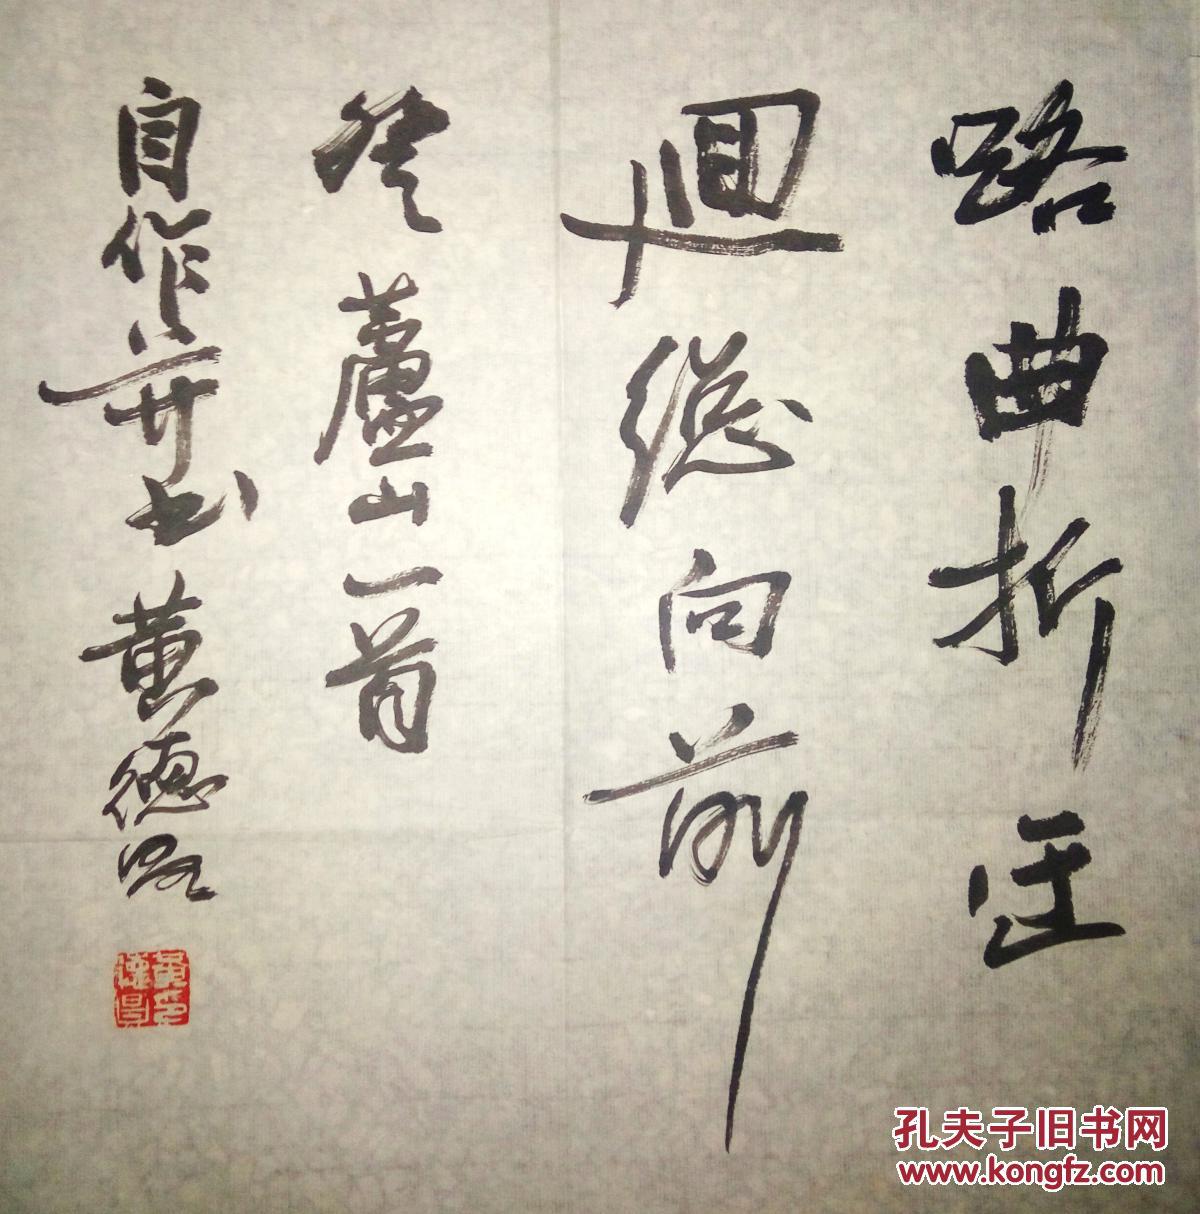 路曲折迂
迴總向前
登蘆山一首
自作并书黄德
孔夫子旧书网
www.kongfz.com